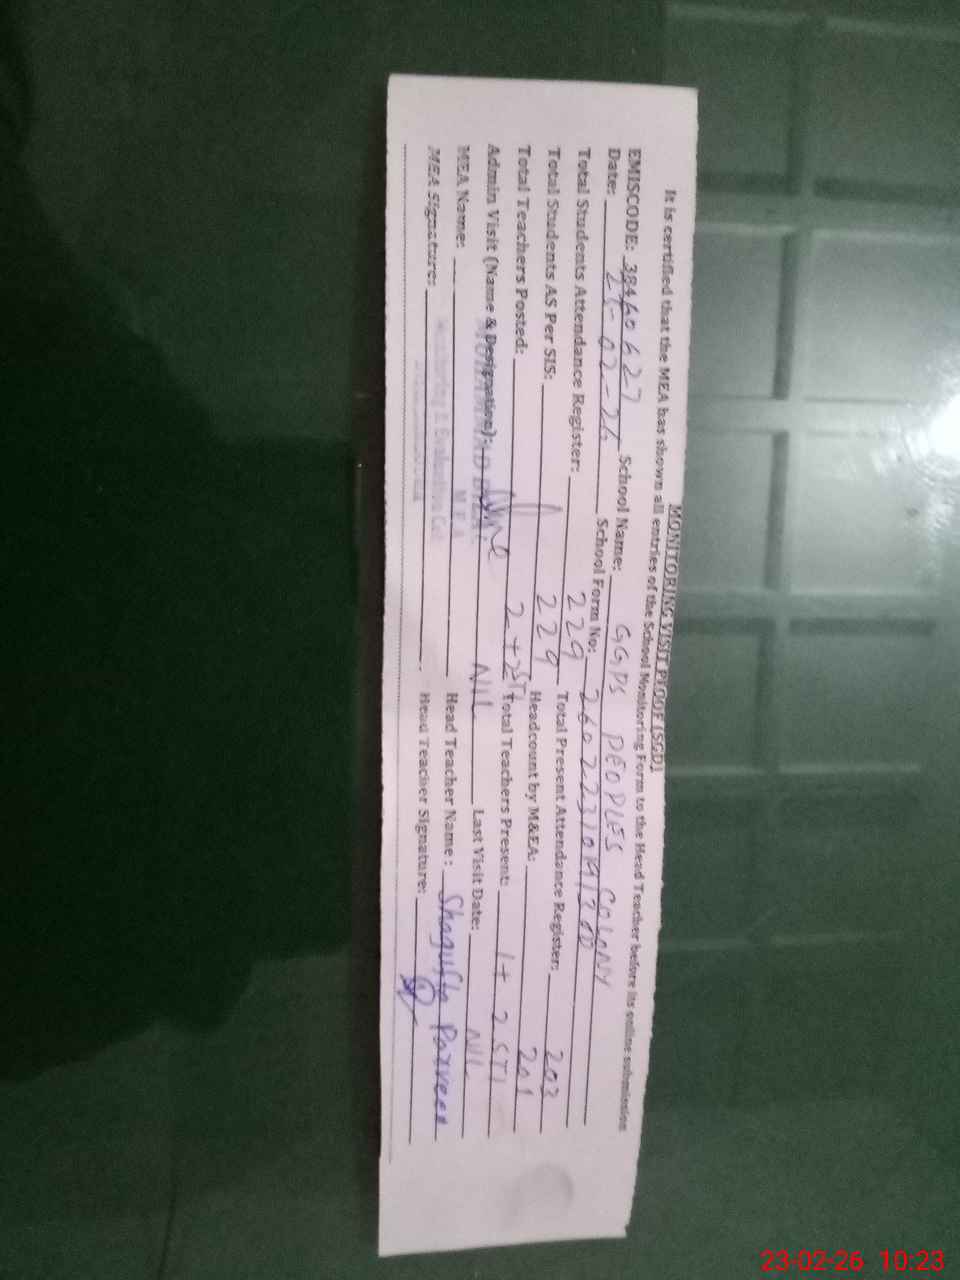 MONITORING VISIT PROOF (SGD)
It is certified that the MEA has shown all entries of the School Monitoring Form to the Head Teacher before its online submission
EMISCODE: 38460627 School Name: GGPS PEOPLES COLONY
Date: 23-02-26 School Form No:
Total Students Attendance Register: 229 Total Present Attendance Register: 203
Total Students AS Per SIS: 229 Headcount by M&EA: 201
Total Teachers Posted: 2+2STI Total Teachers Present: 1+2STI
Admin Visit (Name & Designation): NIL Last Visit Date: NIL
MEA Name: MUHAMMAD M E A Head Teacher Name: Shagufta Parveen
MEA Signature: Monitoring & Evaluation Head Teacher Signature:
23-02-26 10:23